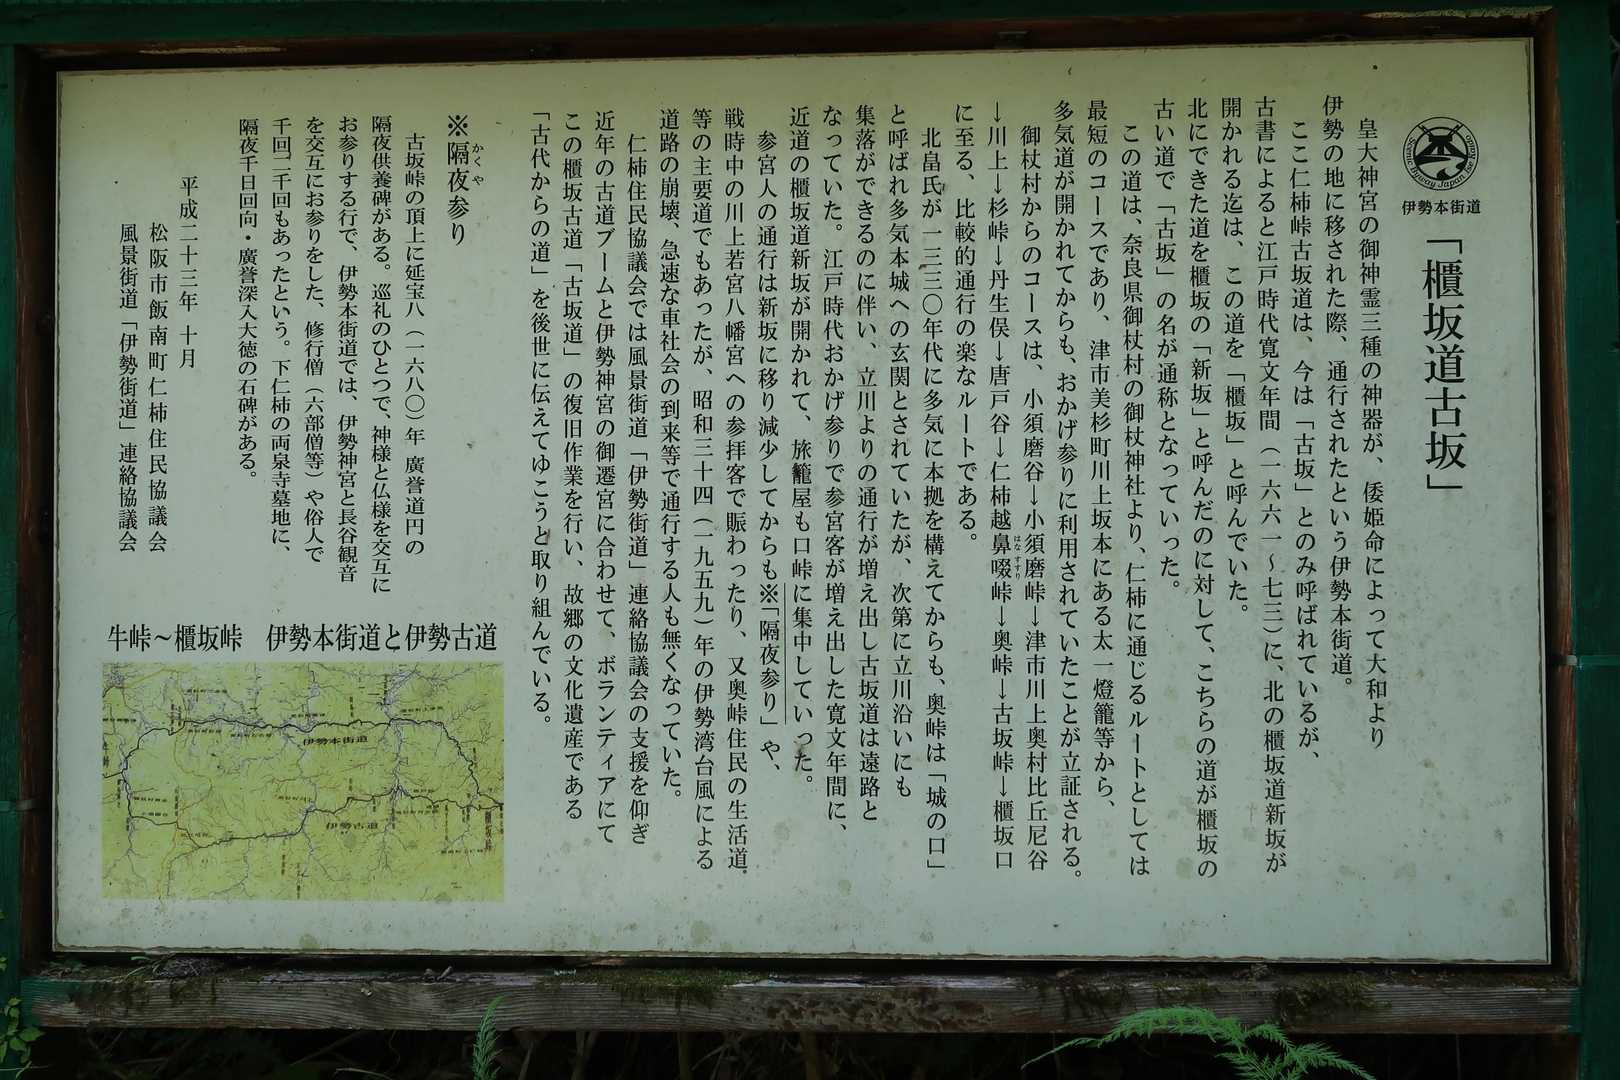 Scenic Byway Japan Ise Kaido
伊勢本街道
「櫃坂道古坂」
皇大神宮の御神霊三種の神器が、倭姫命によって大和より
伊勢の地に移された際、通行されたという伊勢本街道。
ここ仁柿峠古坂道は、今は「古坂」とのみ呼ばれているが、
古書によると江戸時代寛文年間(一六六一~七三)に、北の櫃坂道新坂が
開かれる迄は、この道を「櫃坂」と呼んでいた。
北にできた道を櫃坂の「新坂」と呼んだのに対して、こちらの道が櫃坂の
古い道で「古坂」の名が通称となっていった。
この道は、奈良県御杖村の御杖神社より、仁柿に通じるルートとしては
最短のコースであり、津市美杉町川上坂本にある太一燈籠等から、
多気道が開かれてからも、おかげ参りに利用されていたことが立証される。
御杖村からのコースは、小須磨谷→小須磨峠→津市川上奥村比丘尼谷
→川上→杉峠→丹生俣→唐戸谷→仁柿越鼻啜峠→奥峠→古坂峠→櫃坂口
はなすすり
に至る、比較的通行の楽なルートである。
北畠氏が一三三〇年代に多気に本拠を構えてからも、奥峠は「城の口」
と呼ばれ多気本城への玄関とされていたが、次第に立川沿いにも
集落ができるのに伴い、立川よりの通行が増え出し古坂道は遠路と
なっていた。江戸時代おかげ参りで参宮客が増え出した寛文年間に、
近道の櫃坂道新坂が開かれて、旅籠屋も口峠に集中していった。
参宮人の通行は新坂に移り減少してからも※「隔夜参り」や、
戦時中の川上若宮八幡宮への参拝客で賑わったり、又奥峠住民の生活道
等の主要道でもあったが、昭和三十四(一九五九)年の伊勢湾台風による
道路の崩壊、急速な車社会の到来等で通行する人も無くなっていた。
仁柿住民協議会では風景街道「伊勢街道」連絡協議会の支援を仰ぎ
近年の古道ブームと伊勢神宮の御遷宮に合わせて、ボランティアにて
この櫃坂古道「古坂道」の復旧作業を行い、故郷の文化遺産である
「古代からの道」を後世に伝えてゆこうと取り組んでいる。
※隔夜参り
かくや
古坂峠の頂上に延宝八(一六八〇)年 廣誉道円の
隔夜供養碑がある。巡礼のひとつで、神様と仏様を交互に
お参りする行で、伊勢本街道では、伊勢神宮と長谷観音
を交互にお参りをした、修行僧(六部僧等)や俗人で
千回二千回もあったという。下仁柿の両泉寺墓地に、
隔夜千日回向・廣誉深入大徳の石碑がある。
平成二十三年 十月
松阪市飯南町仁柿住民協議会
風景街道「伊勢街道」連絡協議会
牛峠~櫃坂峠 伊勢本街道と伊勢古道
伊勢本街道
伊勢古道